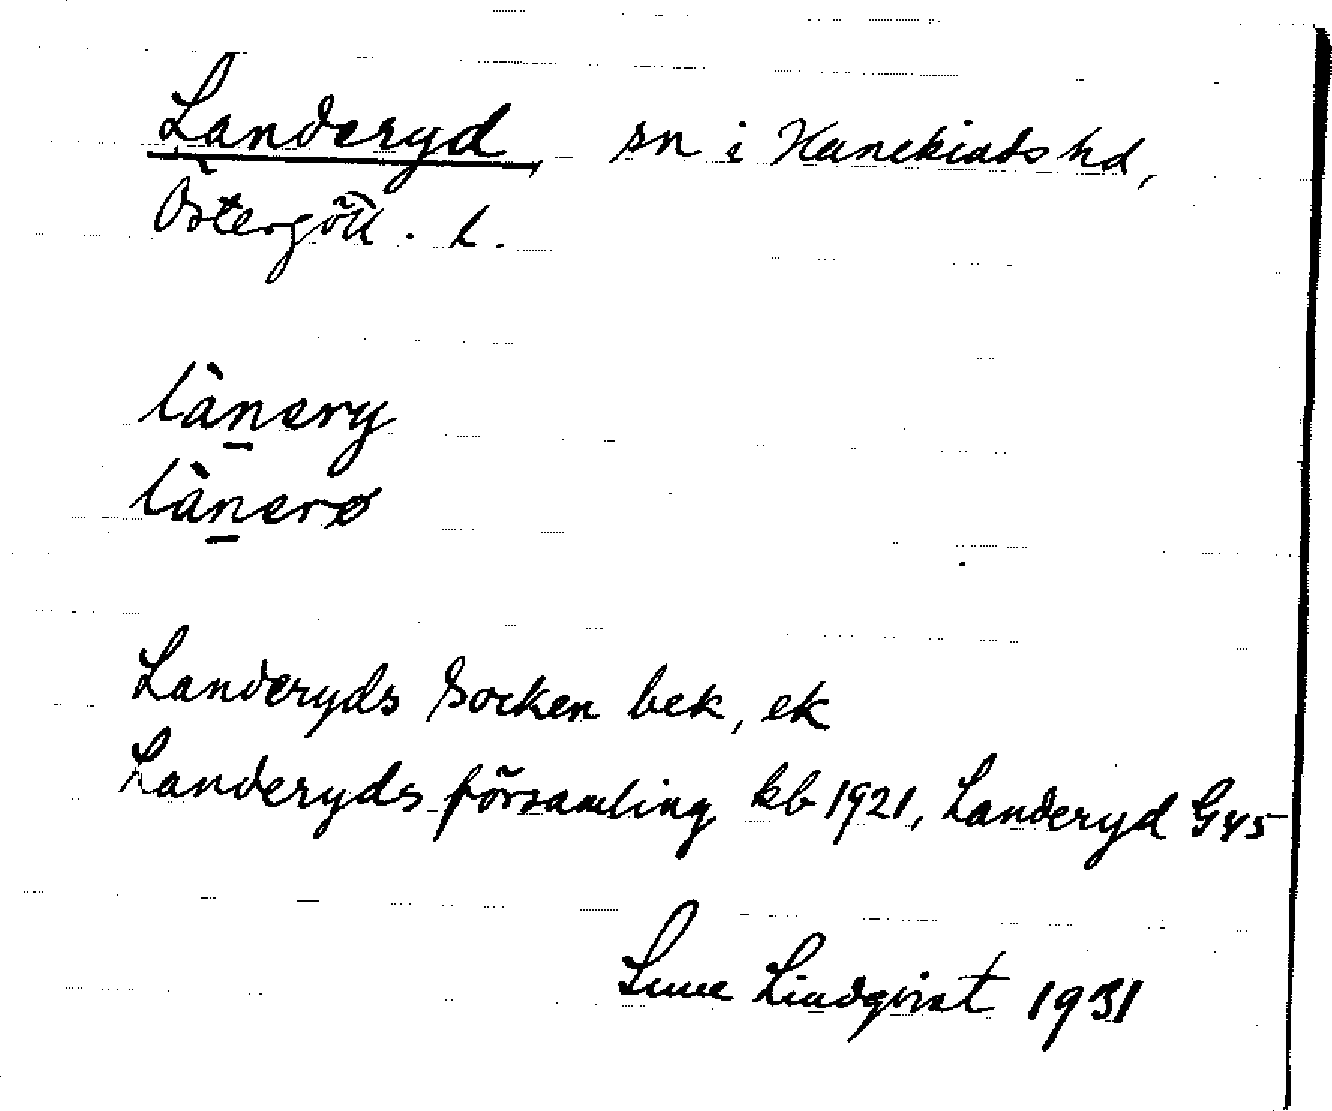 Landeryd sn i Hanekinds hd,
Östergötl. l.
lànery
lànerø
Landeryds socken bek, ek
Landeryds församling kb 1921, Landeryd G45
Sune Lindqvist 1931